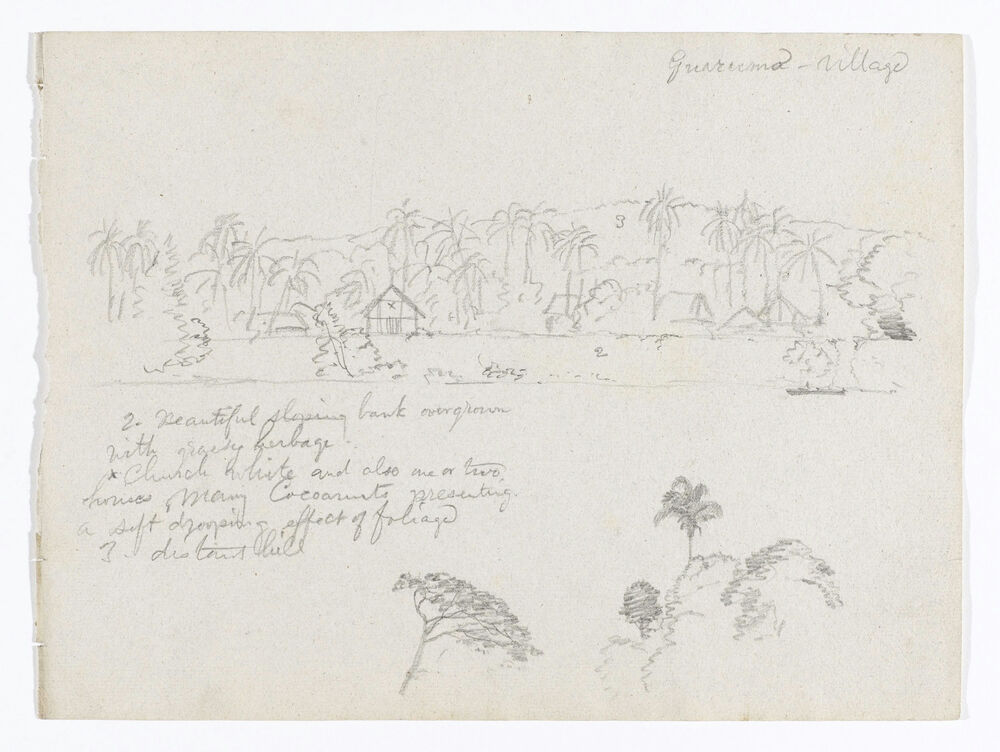 Guarumo - Village
3
2
2. Beautiful sloping bank overgrown
with grassy herbage.
x Church white and also one or two
houses Many Cocoanuts presenting
a soft drooping effect of foliage
3. distant hill